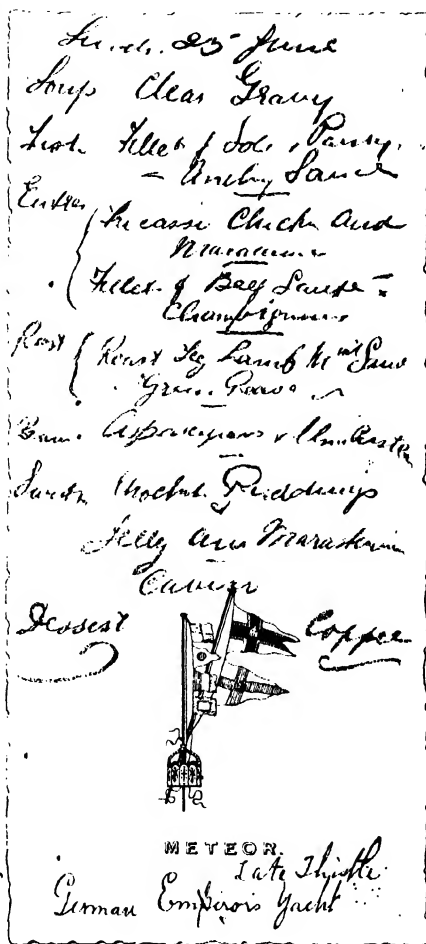 Lunch. 25 June
Soup Clear Gravy
Fish. Fillet of Sole, Parsy.
= Anchy Sauce
Entres
Fricassi Chickn and
Fillet of Beef Sauce =
Champignons
Rost Roast Leg Lamb Mint Sauc
Green Peas
Asparagus
Sweets Choclat. Puddings
Jelly au Maraskin
Caviar
Dessest Coffee
METEOR.
Late Thistle
German Emperois Yacht